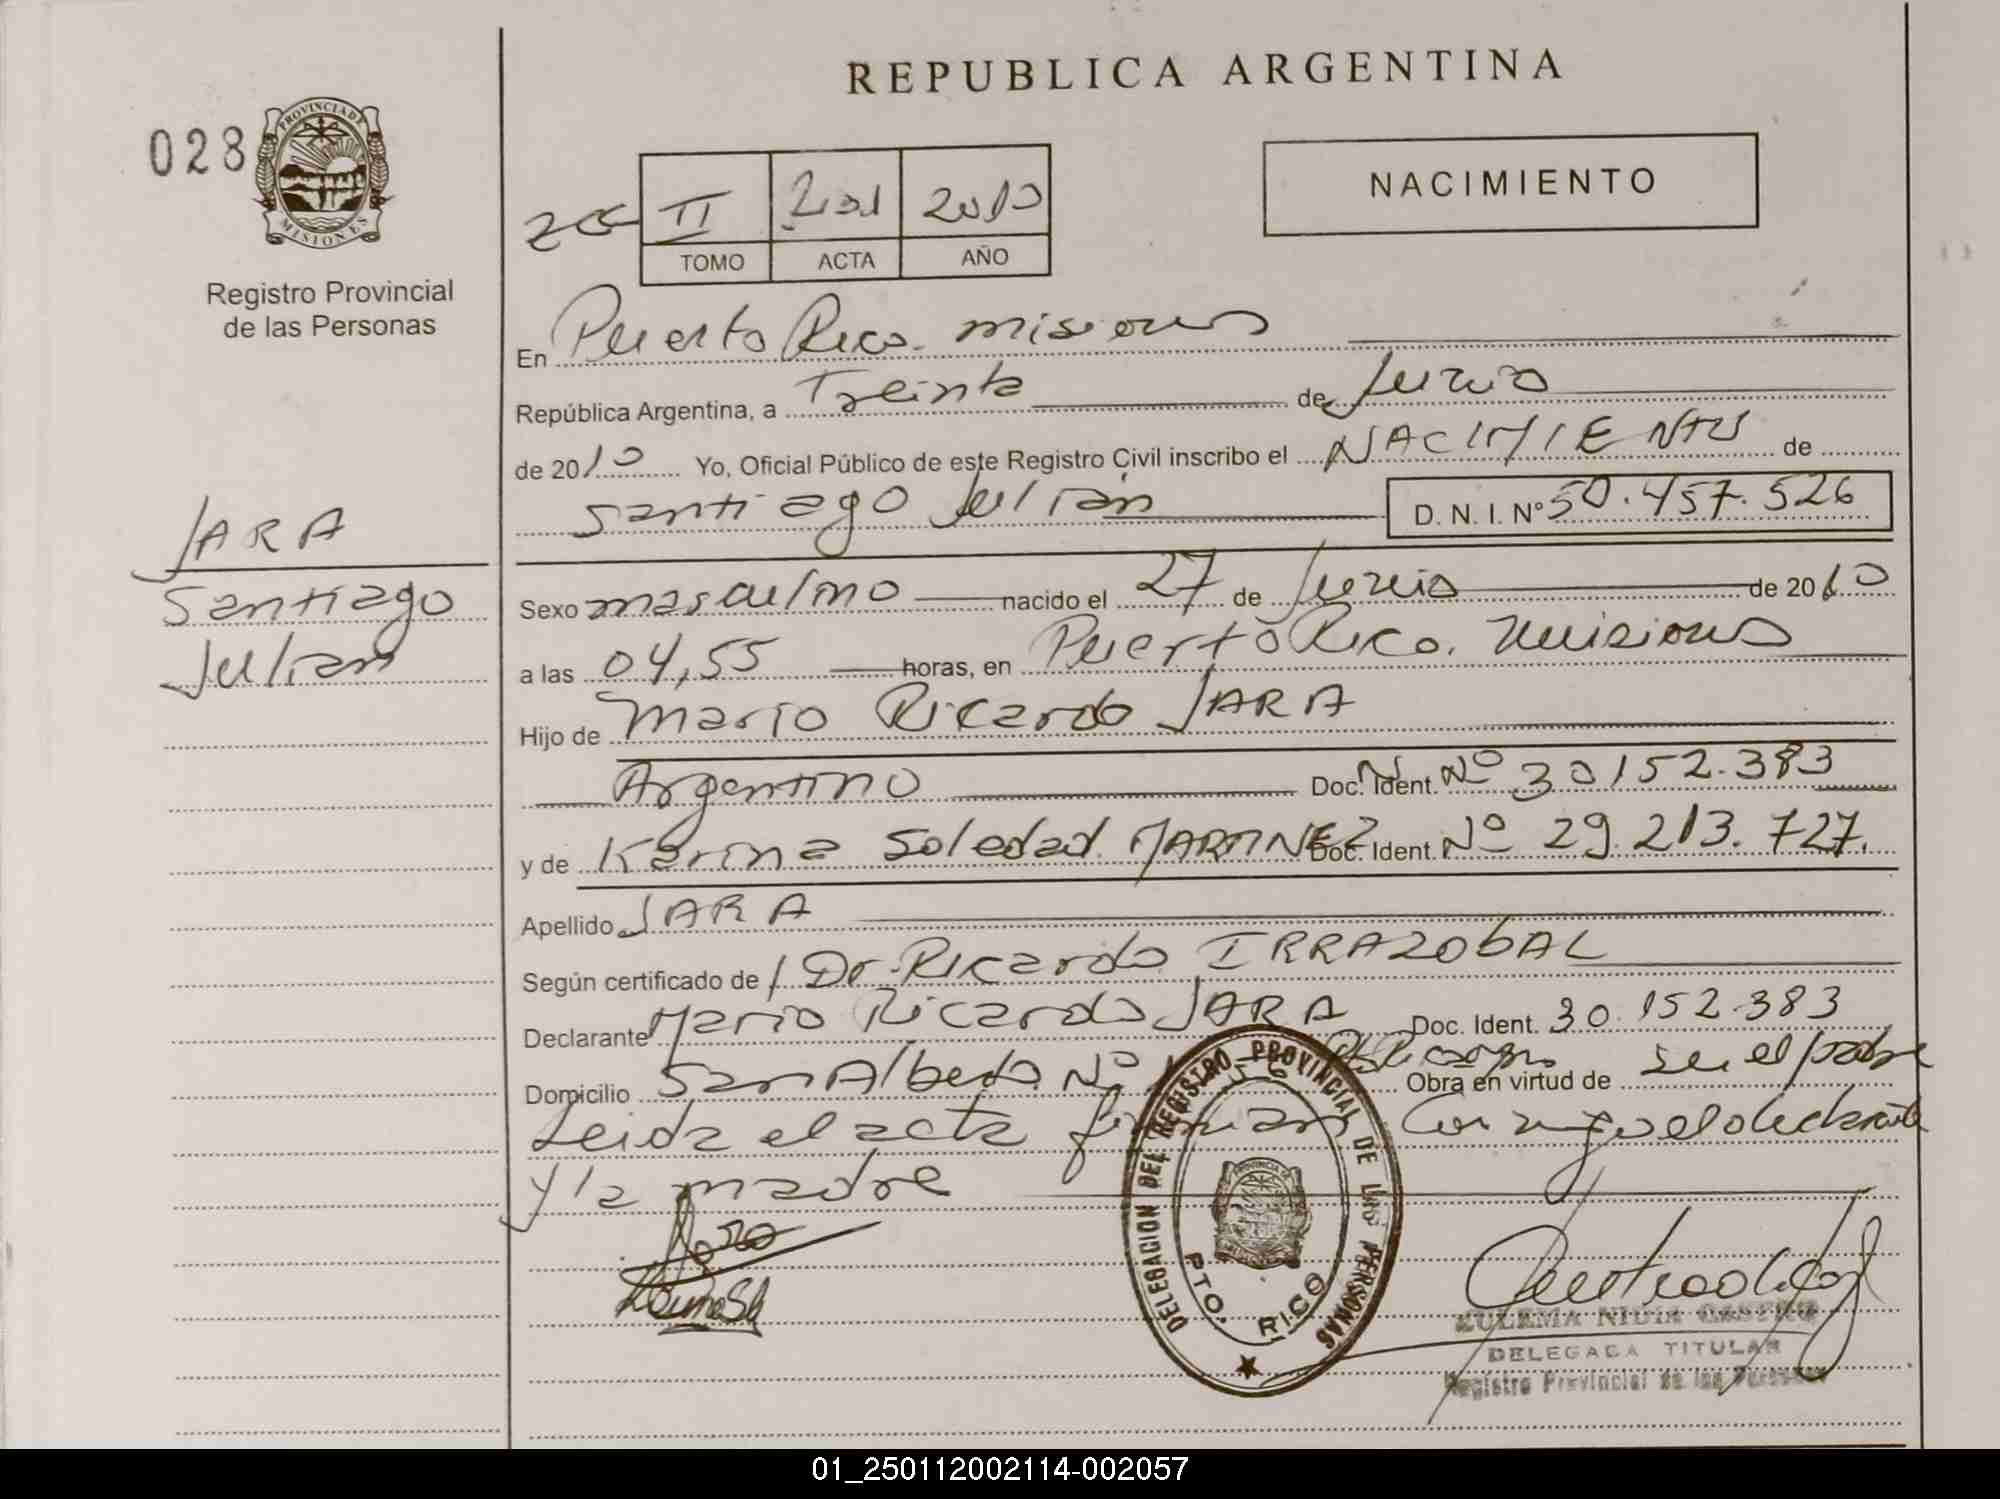 REPUBLICA ARGENTINA
028
PROVINCIA DE
MISIONES
Registro Provincial
de las Personas
NACIMIENTO
II 2010
TOMO ACTA AÑO
En Puerto Rico. misiones
República Argentina, a Treinta de Junio
de 2010 Yo, Oficial Público de este Registro Civil inscribo el NACIMIENTO de
Santiago Julián D. N. I. Nº 50.457.526
JARA
Santiago
Julián
Sexo masculino nacido el 27 de Junio de 2010
a las 04,55 horas, en Puerto Rico. Misiones
Hijo de Mario Ricardo JARA
Argentino Doc. Ident. Nº 30152.383
y de Karina Soledad MARTINEZ Doc. Ident. Nº 29.213.727.
Apellido JARA
Según certificado de Dr. Ricardo IRRAZOBAL
Declarante Mario Ricardo JARA Doc. Ident. 30.152.383
Domicilio San Alberto Nº Obra en virtud de ser el padre
Leida el acta firman conmigo el declarante
y la madre
DELEGACION DEL REGISTRO PROVINCIAL DE LAS PERSONAS
PTO. RICO
ZULEMA NIDIA CASTRO
DELEGADA TITULAR
Registro Provincial de las Personas
01_250112002114-002057